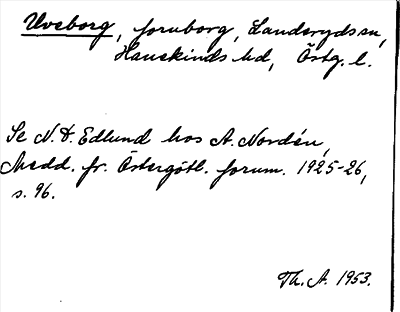 Ulveborg, fornborg, Landeryds sn,
Hanekinds hd, Östg. l.
Se N. D. Edlund hos A. Nordén,
Medd. fr. Östergötl. fornm. 1925-26,
s. 96.
Th. A. 1953.